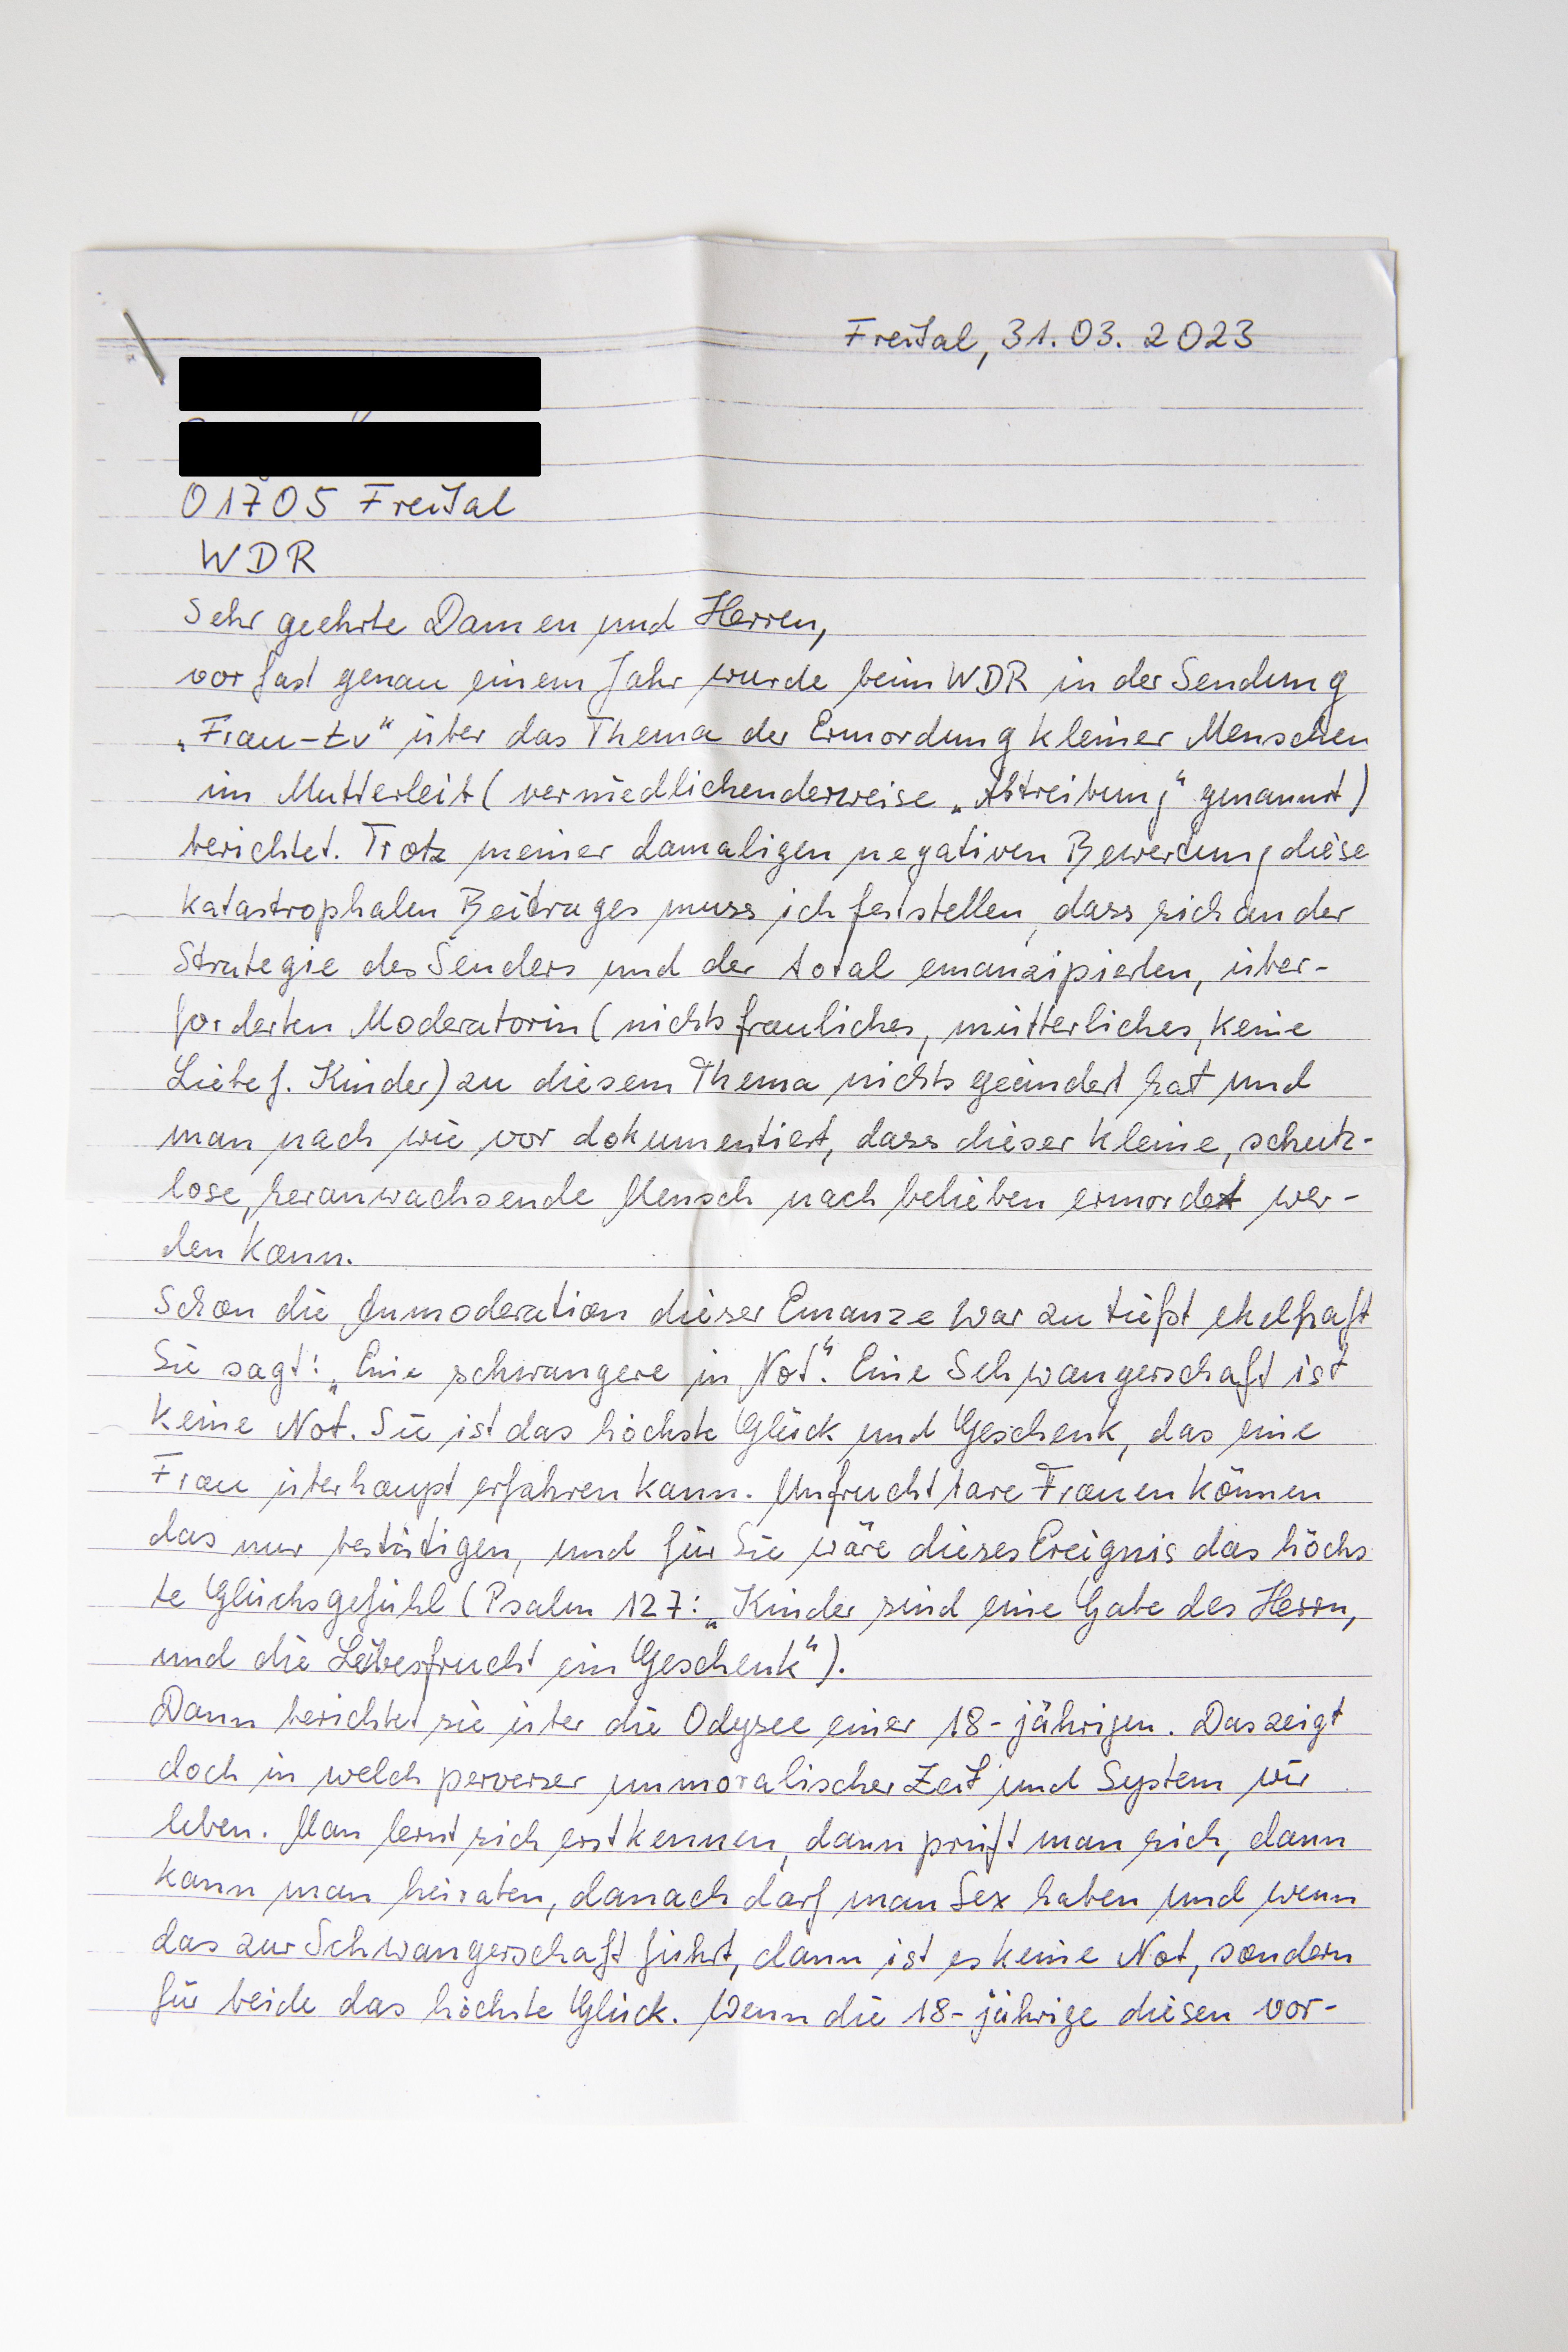 Freital, 31.03.2023
01705 Freital
WDR
Sehr geehrte Damen und Herren,
vor fast genau einem Jahr wurde beim WDR in der Sendung
„Frau-tv“ über das Thema der Ermordung kleiner Menschen
im Mutterleib (verniedlichenderweise „Abtreibung“ genannt)
berichtet. Trotz meiner damaligen negativen Bewertung diese
katastrophalen Beitrages muss ich feststellen, dass sich an der
Strategie des Senders und der total emanzipierten, über-
forderten Moderatorin (nichts frauliches, mütterliches, keine
Liebe f. Kinder) zu diesem Thema nichts geändert hat und
man nach wie vor dokumentiert, dass dieser kleine, schutz-
lose, heranwachsende Mensch nach belieben ermordet wer-
den kann.
Schon die Anmoderation dieser Emanze war zu tiefst ekelhaft
Sie sagt: „Eine schwangere in Not“. Eine Schwangerschaft ist
keine Not. Sie ist das höchste Glück und Geschenk, das eine
Frau überhaupt erfahren kann. Unfruchtbare Frauen können
das nur bestätigen, und für Sie wäre dieses Ereignis das höchs
te Glücksgefühl (Psalm 127: „Kinder sind eine Gabe des Herrn,
und die Leibesfrucht ein Geschenk“).
Dann berichtet sie über die Odysee einer 18-jährigen. Das zeigt
doch in welch perverser unmoralischer Zeit und System wir
leben. Man lernt sich erst kennen, dann prüft man sich, dann
kann man heiraten, danach darf man Sex haben und wenn
das zur Schwangerschaft führt, dann ist es keine Not, sondern
für beide das höchste Glück. Wenn die 18-jährige diesen vor-